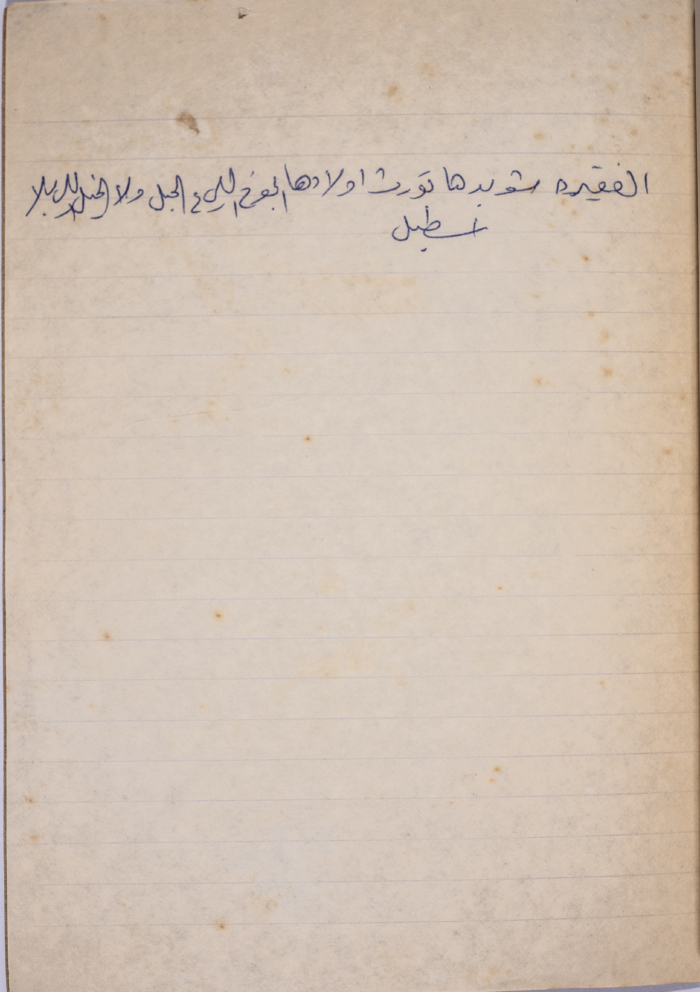 الفقيره شو بدها تورث اولادها الجوخ اللي في الجبل ولا الخيل اللي بلا
اسطبل